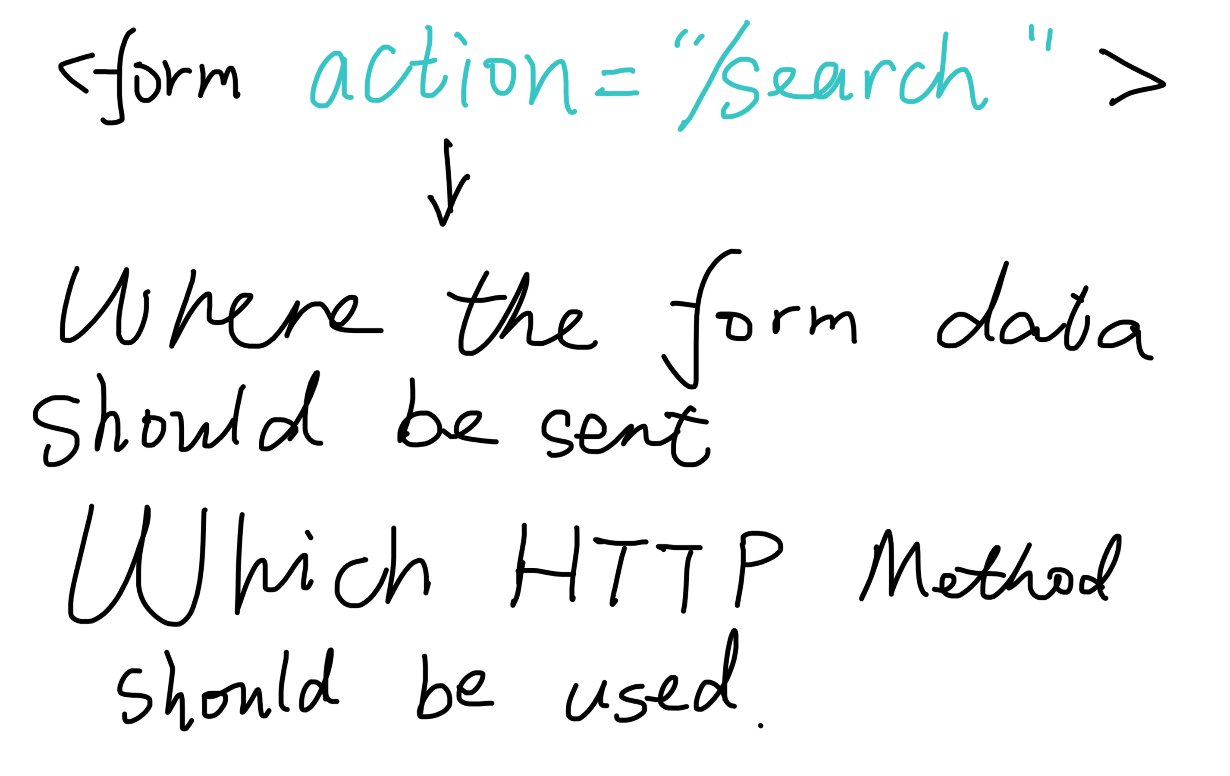 <form action="/search">
Where the form data
should be sent
Which HTTP Method
should be used.